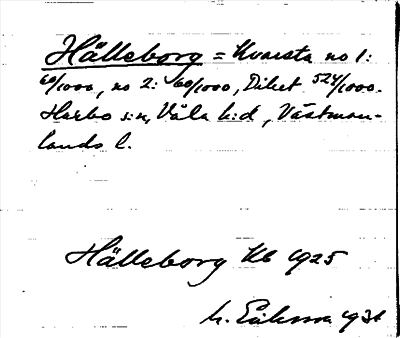 Hälleborg = Kvarsta no 1:
60/1000, no 2: 60/1000, Diket 524/1000.
Harbo s:n, Våla h:d, Västman-
lands l.
Hälleborg Kb 1925
M. Eriksson 1931